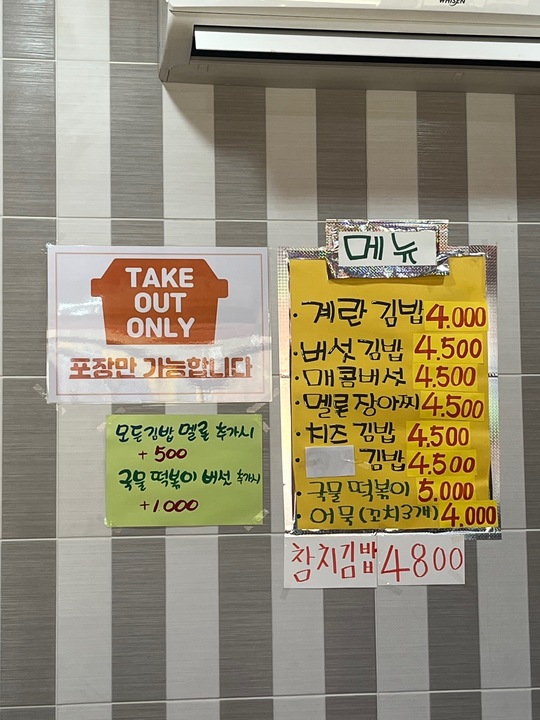 WHISEN
TAKE
OUT
ONLY
포장만 가능합니다
모든김밥 멜롤 추가시
+500
국물 떡볶이 버섯 추가시
+1000
메뉴
·계란 김밥 4.000
·버섯김밥 4.500
·매콤버섯 4.500
·멜롤장아찌 4.500
·치즈김밥 4.500
· 김밥 4.500
·국물떡볶이 5.000
·어묵(꼬치3개) 4.000
참치김밥 4800